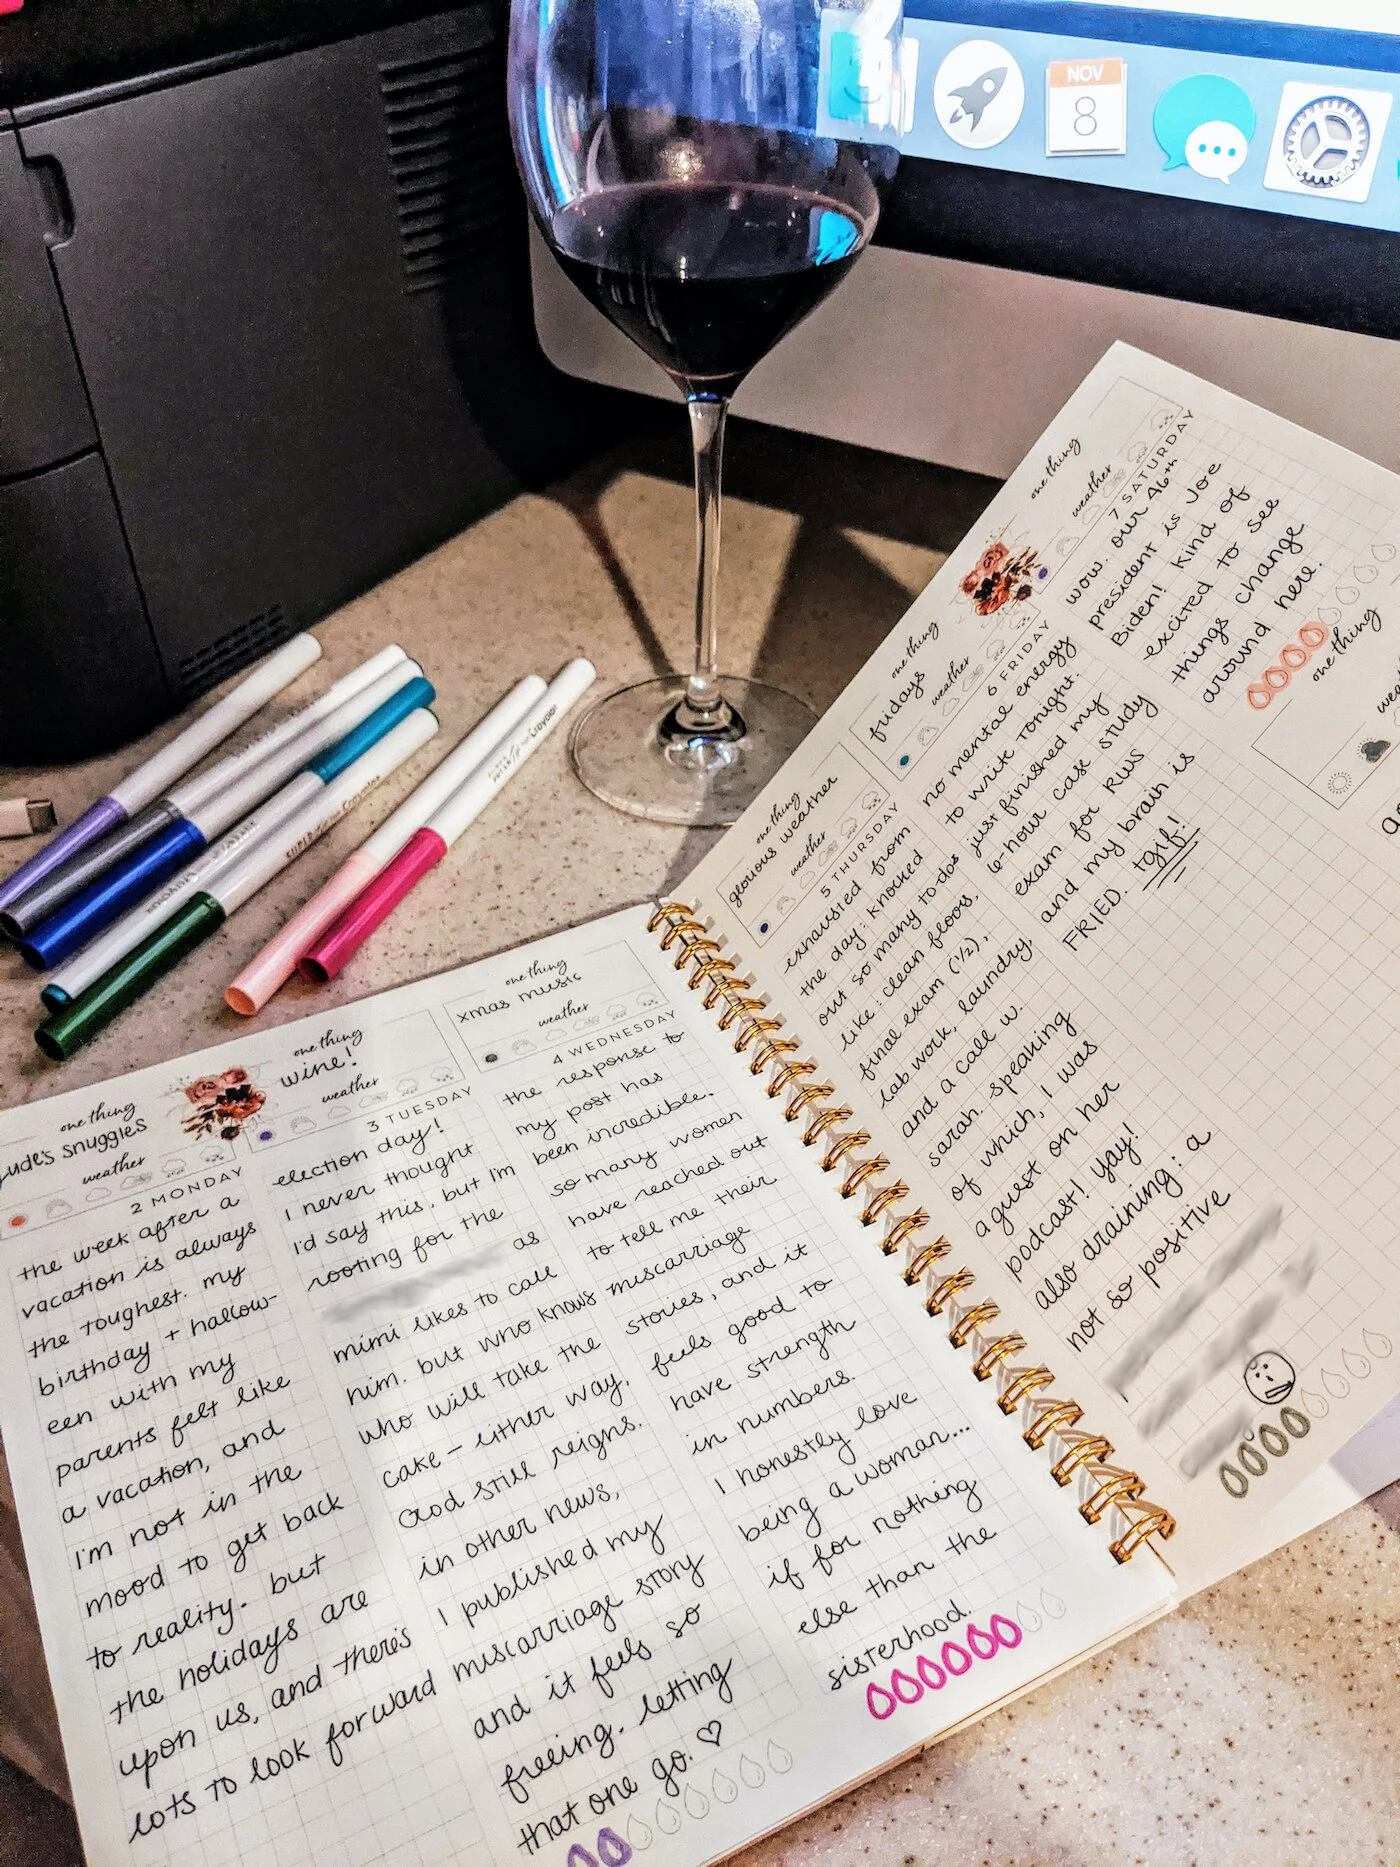 NOV
8
Crayola
SUPER TIPS Crayola
one thing
ude's snuggies
weather
2 MONDAY
the week after a
vacation is always
the toughest. my
birthday + hallow-
een with my
parents felt like
a vacation, and
I'm not in the
mood to get back
to reality. but
the holidays are
upon us, and there's
lots to look forward
one thing
wine!
weather
3 TUESDAY
election day!
I never thought
I'd say this, but I'm
rooting for the
as
mimi likes to call
him. but who knows
who will take the
cake - either way,
God still reigns.
in other news,
I published my
miscarriage story
and it feels so
freeing. letting
that one go. ♡
one thing
xmas music
weather
4 WEDNESDAY
the response to
my post has
been incredible.
so many women
have reached out
to tell me their
miscarriage
stories, and it
feels good to
have strength
in numbers.
I honestly love
being a woman...
if for nothing
else than the
sisterhood.
one thing
glorious weather
weather
5 THURSDAY
exhausted from
the day: knocked
out so many to-dos
like: clean floors,
final exam (1/2),
lab work, laundry,
and a call w.
sarah. speaking
of which, I was
a guest on her
podcast! yay!
also draining: a
not so positive
one thing
fridays
weather
6 FRIDAY
no mental energy
to write tonight.
just finished my
6-hour case study
exam for RWS
and my brain is
FRIED. tgif!
one thing
weather
7 SATURDAY
wow. our 46th
president is Joe
Biden! kind of
excited to see
things change
around here.
one thing